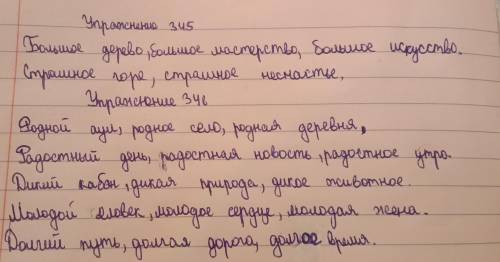 Упражнение 345
Большое дерево, большое мастерство, большое искусство.
Страшное горе, страшное несчастье.
Упражнение 346
Родной аул, родное село, родная деревня,
Радостный день, радостная новость, радостное утро.
Дикий кабан, дикая природа, дикое животное.
Молодой человек, молодое сердце, молодая жена.
Долгий путь, долгая дорога, долгое время.